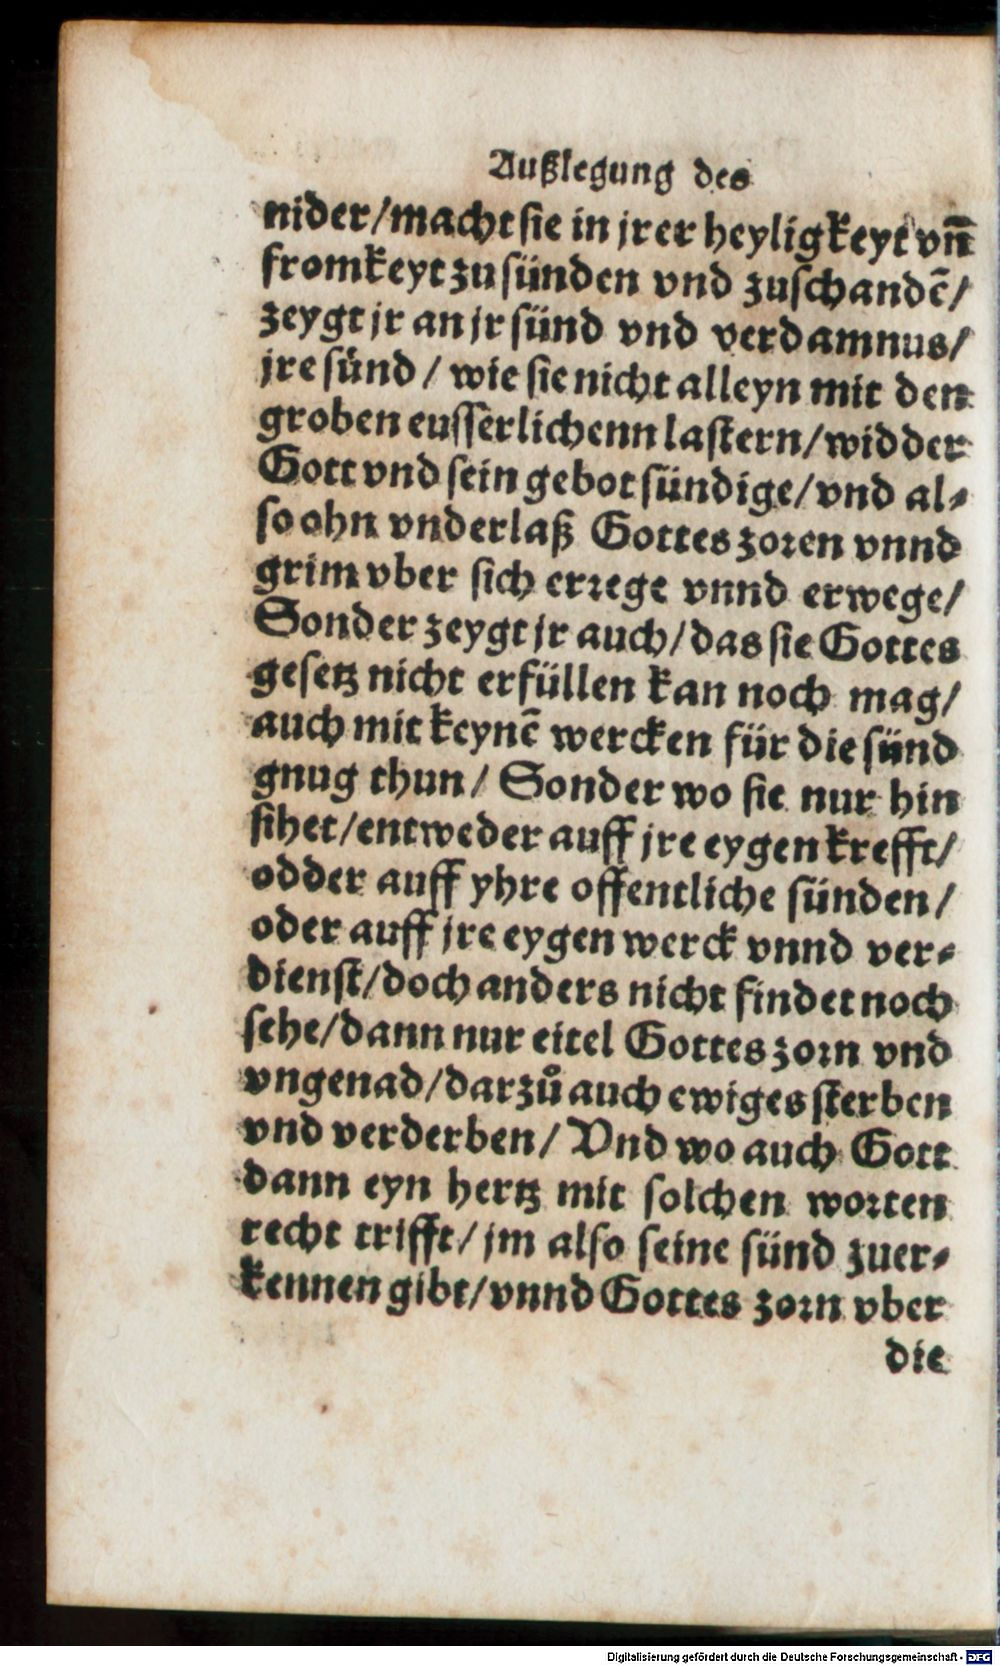 Außlegung des
nider/macht sie in jrer heyligkeyt vn̄
fromkeyt zu sünden vnd zuschandē/
zeygt jr an jr sünd vnd verdamnus/
jre sünd / wie sie nicht alleyn mit den
groben eusserlichenn lastern/widder
Gott vnd sein gebot sündige/vnd al⸗
so ohn vnderlaß Gottes zoren vnnd
grim vber sich errege vnnd erwege/
Sonder zeygt jr auch/das sie Gottes
gesetz nicht erfüllen kan noch mag/
auch mit keynē wercken für die sünd
gnug thun/ Sonder wo sie nur hin
sihet/entweder auff jre eygen krefft/
odder auff yhre offentliche sünden/
oder auff jre eygen werck vnnd ver⸗
dienst/doch anders nicht findet noch
sehe/dann nur eitel Gottes zorn vnd
vngenad/darzů auch ewiges sterben
vnd verderben/ Vnd wo auch Gott
dann eyn hertz mit solchen worten
recht trifft/jm also seine sünd zuer⸗
kennen gibt/vnnd Gottes zorn vber
die
Digitalisierung gefördert durch die Deutsche Forschungsgemeinschaft - DFG